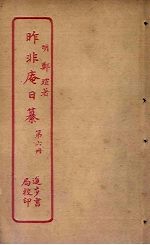 明鄭瑄著
昨非庵日纂 第六冊
進步書局校印